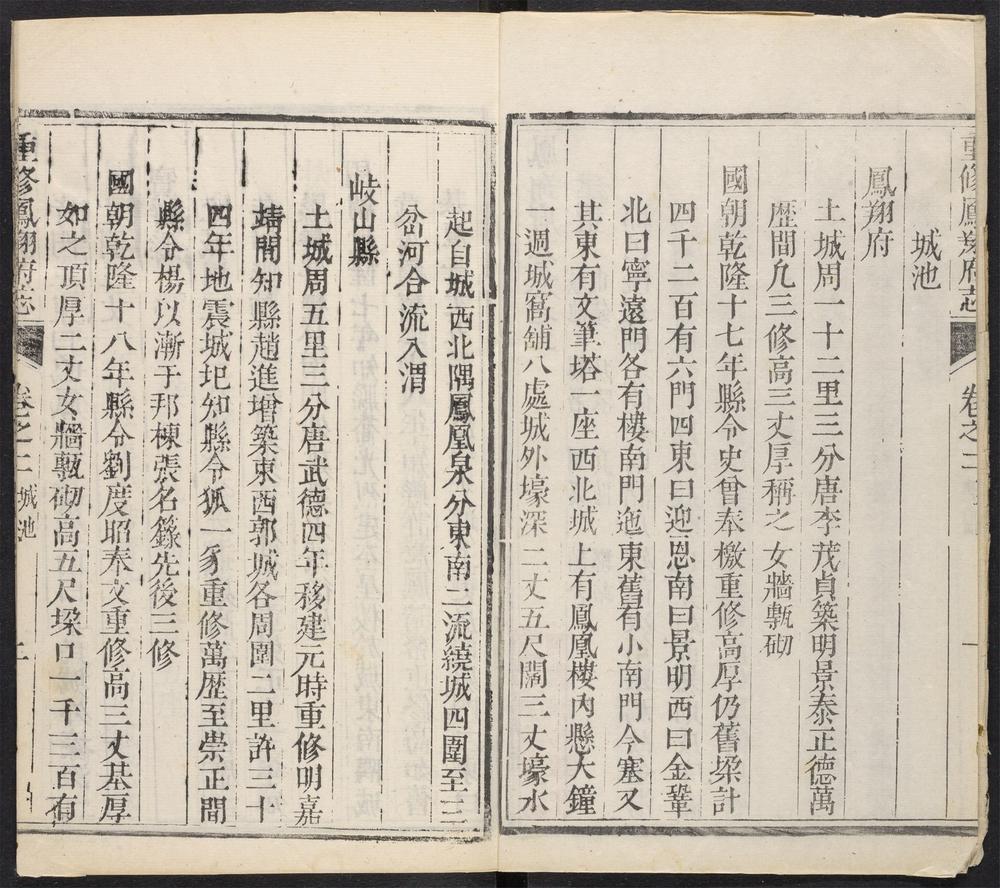 重修鳳翔府志 卷之二
城池
鳳翔府
土城周一十二里三分唐李茂貞築明景泰正德萬
歴間凢三修高三丈厚稱之 女牆甎砌
國朝乾隆十七年縣令史曾奉檄重修高厚仍舊垜計
四千二百有六門四東曰迎恩南曰景明西曰金鞏
北曰寧遠門各有樓南門迤東舊有小南門今塞又
其東有文筆塔一座西北城上有鳳凰樓內懸大鐘
一週城窩舖八處城外壕深二丈五尺闊三丈壕水
起自城西北隅鳳凰泉分東南二流繞城四圍至三
岔河合流入渭
岐山縣
土城周五里三分唐武德四年移建元時重修明嘉
靖間知縣趙進增築東西郭城各周圍二里許三十
四年地震城圯知縣令狐一豸重修萬歴至崇正間
縣令楊以漸于邦棟張名籙先後三修
國朝乾隆十八年縣令劉度昭奉文重修高三丈基厚
如之頂厚二丈女牆甎砌高五尺垜口一千三百有
重修鳳翔府志 卷之二 城池 二